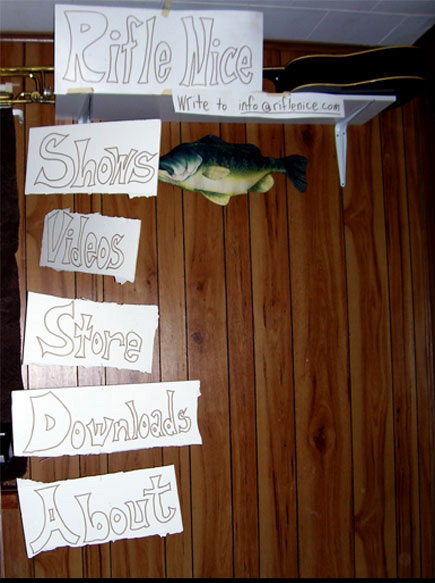 Rifle Nice
Write to info@riflenice.com
Shows
Videos
Store
Downloads
About